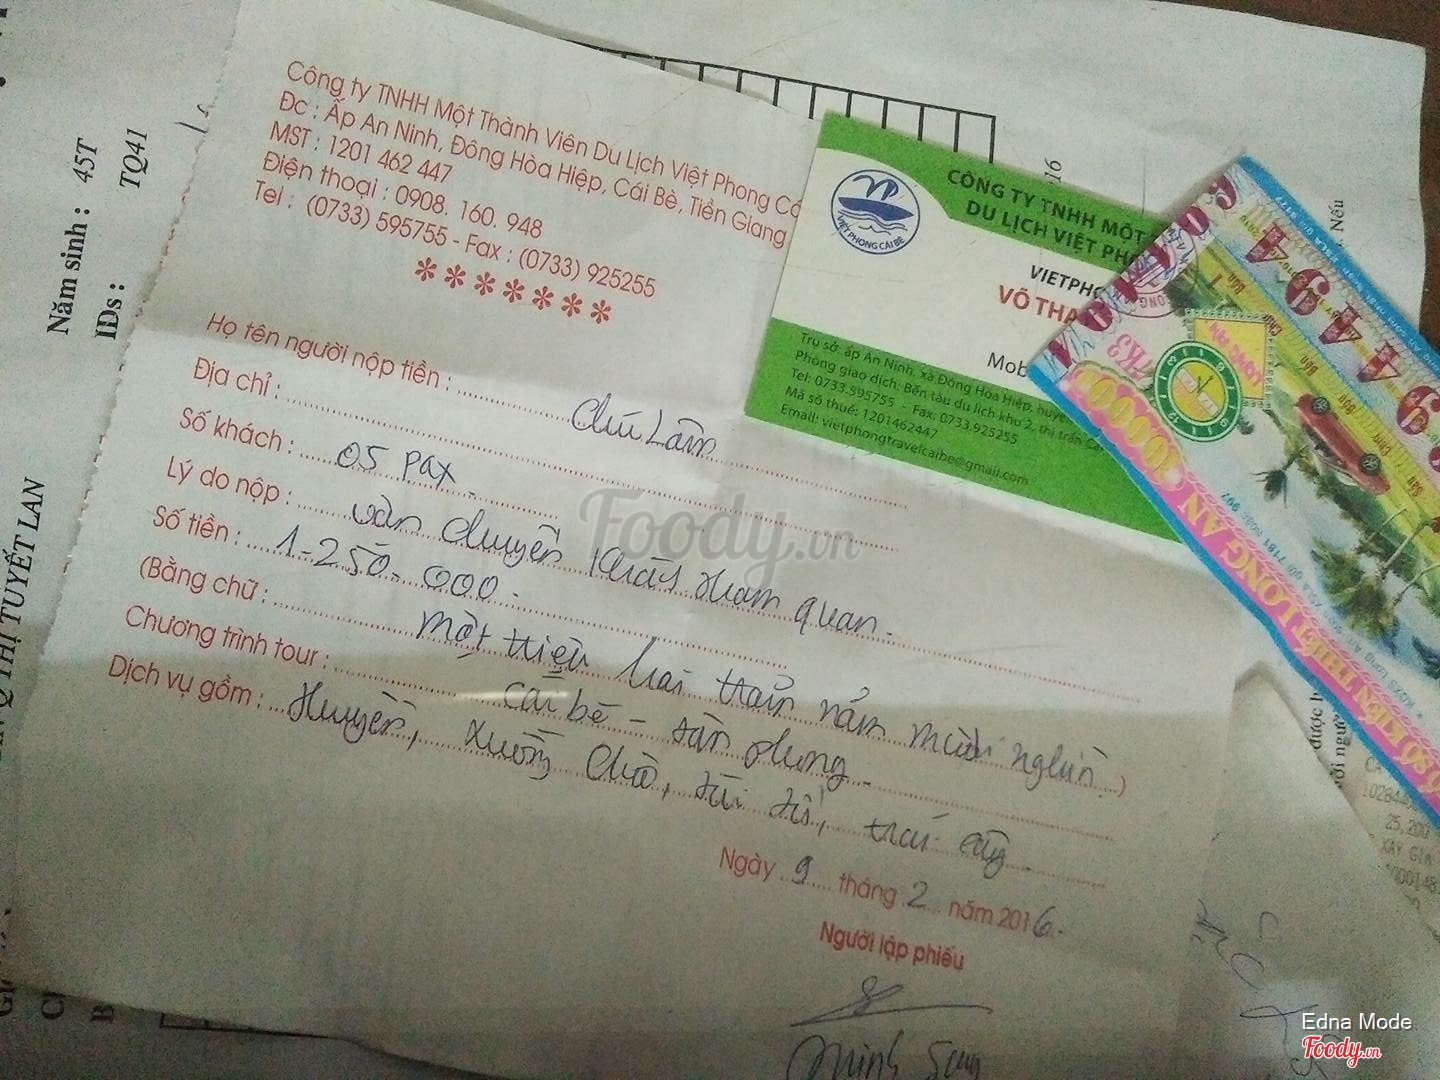 Công ty TNHH Một Thành Viên Du Lịch Việt Phong Cá
Đc : Ấp An Ninh, Đông Hòa Hiệp, Cái Bè, Tiền Giang
MST : 1201 462 447
Điện thoại : 0908. 160. 948
Tel : (0733) 595755 - Fax : (0733) 925255
*******
Họ tên người nộp tiền : Chú Lâm
Địa chỉ :
Số khách : 05 pax
Lý do nộp : vận chuyển khách tham quan.
Số tiền : 1.250.000.
(Bằng chữ : Một triệu hai trăm năm mươi nghìn )
Chương trình tour : Cái bè - tân phong
Dịch vụ gồm : thuyền, xuồng chèo, trái cây
Ngày 9 tháng 2 năm 2016.
Người lập phiếu
Minh Sang
CÔNG TY TNHH MỘT
DU LỊCH VIỆT PHO
VIETPHO
VÕ THA
Mob
VIỆT PHONG CÁI BÈ
Trụ sở: ấp An Ninh, xã Đông Hòa Hiệp, huyện
Phòng giao dịch: Bến tàu du lịch khu 2, thị trấn Cá
Tel: 0733.595755 - Fax: 0733.925255
Mã số thuế: 1201462447
Email: vietphongtravelcaibe@gmail.com
Năm sinh : 45T
IDs : TQ41
THỊ TUYẾT LAN
Nếu
1K3
10000
XỔ SỐ KIẾN THIẾT LONG AN
Foody.vn
Edna Mode
Foody.vn